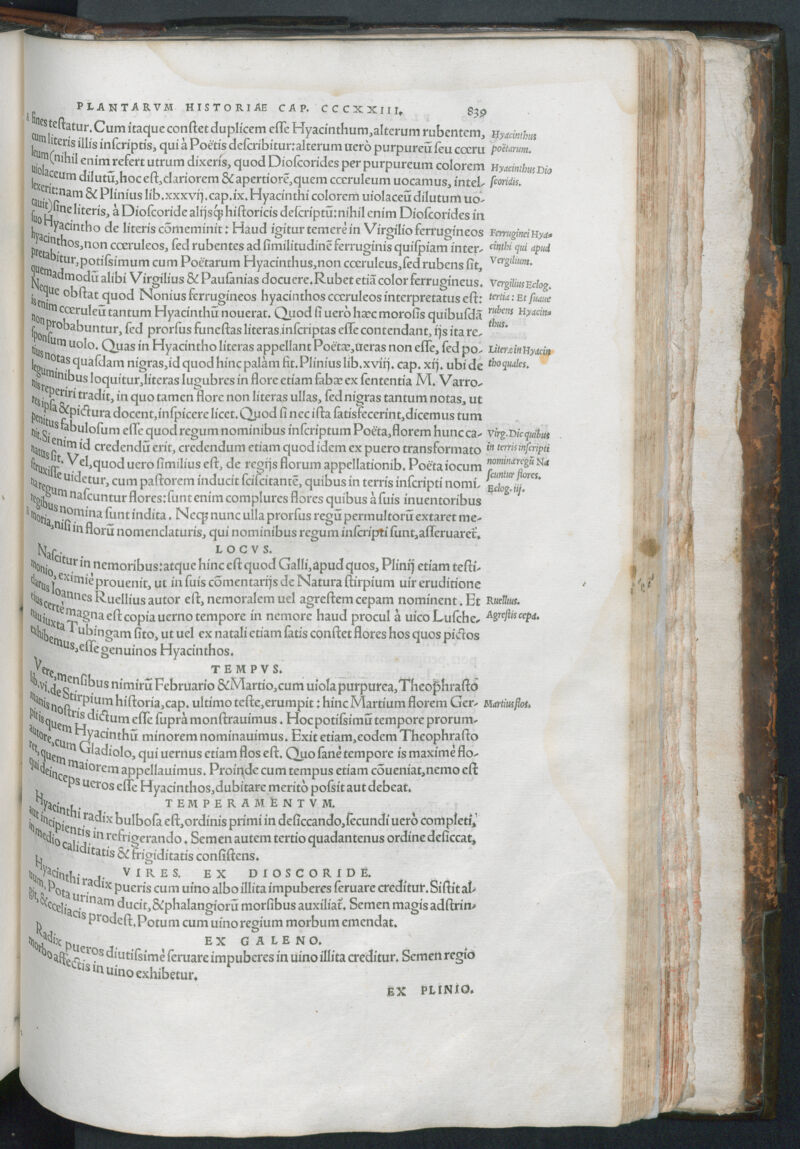 PLANTARVM HISTORIAE CAP. CCCXXIII. 839
fines testatur. Cum itaque constet duplicem esse Hyacinthum, alterum rubentem,
cum literis illis inscriptis, qui à Poëtis describitur: alterum uerò purpureũ seu cœru
leum (nihil enim refert utrum dixeris, quod Dioscorides per purpureum colorem
uiolaceum dilutũ, hoc est, clariorem & apertiorẽ, quem cœruleum uocamus, intel-
lexerit: nam & Plinius lib. xxxvij. cap. ix. Hyacinthi colorem uiolaceũ dilutum uo-
cauit) sine literis, à Dioscoride alijsq́; historicis descriptũ: nihil enim Dioscorides in
suo Hyacintho de literis cõmeminit: Haud igitur temerè in Virgilio ferrugineos
hyacinthos, non cœruleos, sed rubentes ad similitudinẽ ferruginis quispiam inter-
pretabitur, potissimum cum Poëtarum Hyacinthus, non cœruleus, sed rubens sit,
quemadmodũ alibi Virgilius & Pausanias docuere. Rubet etiã color ferrugineus.
Neque obstat quod Nonius ferrugineos hyacinthos cœruleos interpretatus est:
is enim cœruleũ tantum Hyacinthũ nouerat. Quod si uerò hæc morosis quibusdã
non probabuntur, sed prorsus funestas literas inscriptas esse contendant, ijs ita re-
sponsum uolo. Quas in Hyacintho literas appellant Poëtæ, ueras non esse, sed po-
tius notas quasdam nigras, id quod hinc palàm fit. Plinius lib. xviij. cap. xij. ubi de
leguminibus loquitur, literas lugubres in flore etiam fabæ ex sententia M. Varro-
nis reperiri tradit, in quo tamen flore non literas ullas, sed nigras tantum notas, ut
res ipsa & pictura docent, inspicere licet. Quod si nec ista satisfecerint, dicemus tum
penitus fabulosum esse quod regum nominibus inscriptum Poëta, florem hunc ca-
nit. Si enim id credendũ erit, credendum etiam quod idem ex puero transformato
natus sit. Vel, quod uero similius est, de regijs florum appellationib. Poëta iocum
struxisse uidetur, cum pastorem inducit sciscitantẽ, quibus in terris inscripti nomi-
na regum nascuntur flores: sunt enim complures flores quibus à suis inuentoribus
regibus nomina sunt indita. Neq; nunc ulla prorsus regũ permultorũ extaret me-
moria, nisi in florũ nomenclaturis, qui nominibus regum inscripti sunt, asseruaret̃.
LOCVS.
Nascitur in nemoribus: atque hinc est quod Galli, apud quos, Plinij etiam testi-
monio, eximiè prouenit, ut in suis cõmentarijs de Natura stirpium uir eruditione
clarus Ioannes Ruellius autor est, nemoralem uel agrestem cepam nominent. Et
eius certè magna est copia uerno tempore in nemore haud procul à uico Lusche-
nau iuxta Tubingam sito, ut uel ex natali etiam satis constet flores hos quos pictos
exhibemus, esse genuinos Hyacinthos.
TEMPVS.
Vere, mensibus nimirũ Februario & Martio, cum uiola purpurea, Theophrasto
lib. vi. de Stirpium historia, cap. ultimo teste, erumpit: hinc Martium florem Ger-
manis nostris dictum esse suprà monstrauimus. Hoc potissimũ tempore prorum-
pit is quem Hyacinthũ minorem nominauimus. Exit etiam, eodem Theophrasto
autore, cum Gladiolo, qui uernus etiam flos est. Quo sanè tempore is maximè flo-
ret, quem maiorem appellauimus. Proinde cum tempus etiam cõueniat, nemo est
qui deinceps ueros esse Hyacinthos, dubitare meritò possit aut debeat.
TEMPERAMENTVM.
Hyacinthi radix bulbosa est, ordinis primi in desiccando, secundi uerò completi,
aut incipientis in refrigerando. Semen autem tertio quadantenus ordine desiccat,
in medio caliditatis & frigiditatis consistens.
VIRES. EX DIOSCORIDE.
Hyacinthi radix pueris cum uino albo illita impuberes seruare creditur. Sistit al-
uum. Pota urinam ducit, & phalangiorũ morsibus auxiliat̃. Semen magis adstrin-
git, & cœliacis prodest. Potum cum uino regium morbum emendat.
EX GALENO.
Radix pueros diutissimè seruare impuberes in uino illita creditur. Semen regio
morbo affectis in uino exhibetur.
EX PLINIO.
Hyacinthus
poëtarum.
Hyacinthus Dio
scoridis.
Ferruginei Hya-
cinthi qui apud
Vergilium.
Vergilius Eclog.
tertia: Et suaue
rubens Hyacin-
thus.
Literæ in Hyacin
tho quales.
Virg. Dic quibus
in terris inscripti
nomina regũ Na
scuntur flores.
Eclog. iij.
Ruellius.
Agrestis cepa.
Martius flos.